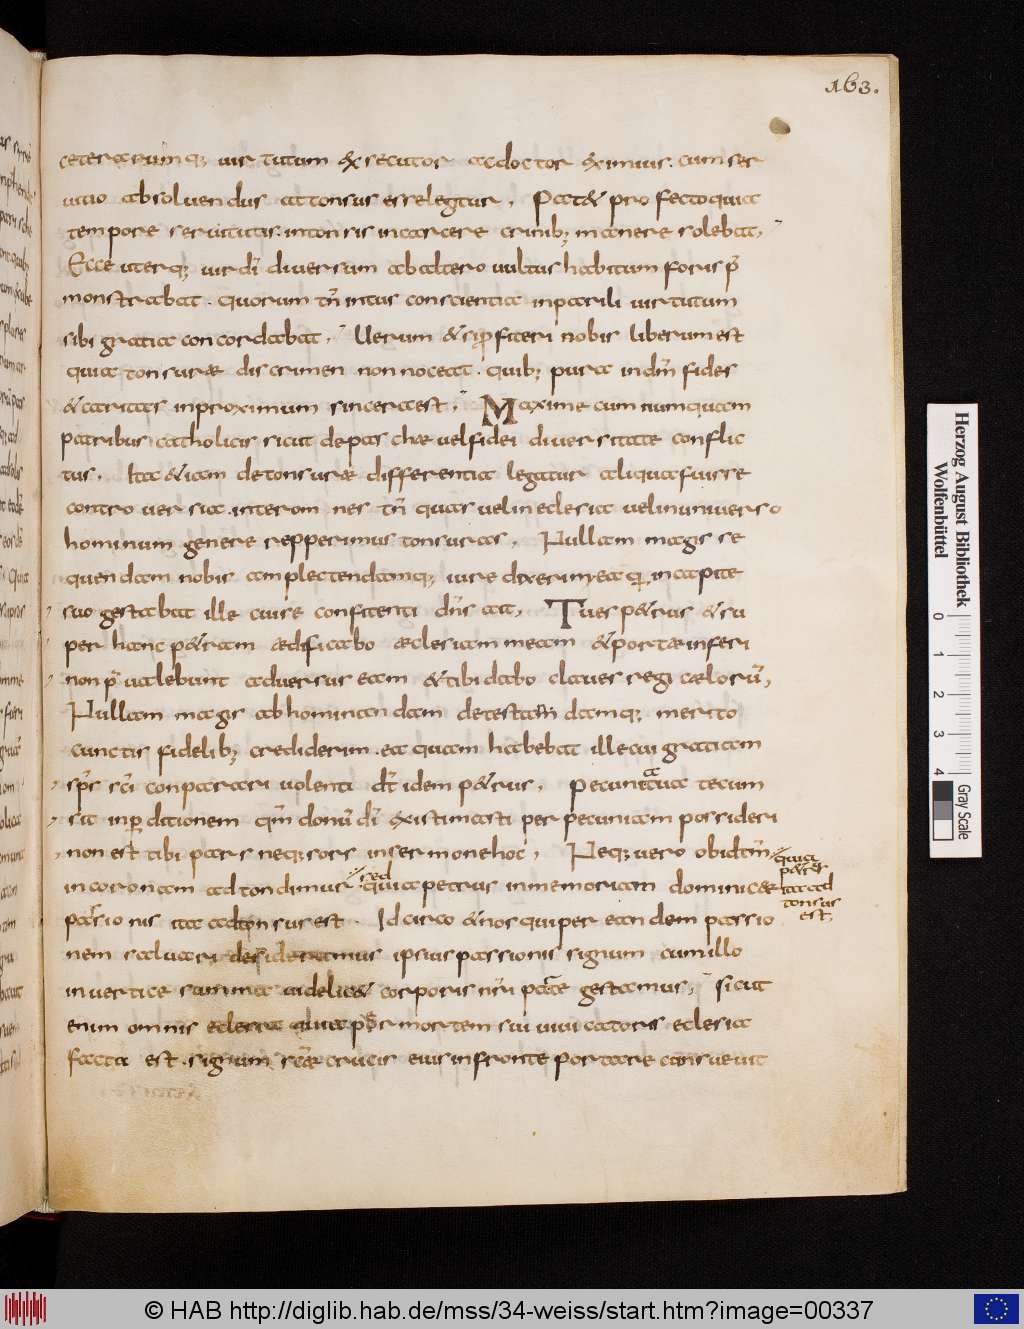 163.
ceterarumq; uirtutum exsecutor ac doctor eximius. cum ser
uitio absoluendus attonsus esse legitur. Patet profecto quia
tempore seruitutis. intonsis in carcere crinib; manere solebat.
Ecce uterq; uir dī diuersum ab altero uultus habitum foris p̄
monstrabat. quorum tn̄ intus conscientia inparili uirtutum
sibi gratia concordabat. Uerum & si pfiteri nobis liberum est
quia tonsuræ discrimen non noceat. quib; pura in dm̄ fides
& caritas in proximum sincera est. Maxime cum numquam
patribus catholicis sicut de paschæ uel fidei diuersitate conflic
tus. Ita & iam de tonsuræ differentia legatur aliqua fuisse
controuersia. inter omnes tn̄ quas uel in eclesia uel in uniuerso
hominum genere repperimus tonsuras. Nullam magis se
quendam nobis amplectendamq; iure dixerim ea q̄ in capite
suo gestabat ille cui se confitenti dn̄s ait. Tu es petrus & su
per hanc petram ædificabo æclesiam meam & portæ inferi
non p̄ualebunt aduersus eam & tibi dabo claues regi cælorū,
Nullam magis abhominandam detestandamq; merito
cunctis fidelib; crediderim. ea quam habebat ille cui gratiam
sp̄s sc̄i conparari uolenti dt̄ idem petrus. Pecunia tua tecum
sit in pditionem qm̄ donū dī existimasti per pecuniam possideri
non est tibi pars neq; sors in sermone hoc. Neq; uero ob id tm̄
in coronam adtondimur sed quia petrus in memoriam dominicæ
passionis ita adtonsus est. Idcirco & nos qui per eandem passio
nem saluari desideramus ipsius passionis signum cum illo
in uertice summa uidelicet corporis nr̄i parte gestamus. Sicut
enim omnis eclesia quia p mortem sui uiuificatoris eclesia
facta est. signum scæ crucis eius in fronte portare consueuit
quia
petr
ita ad
tonsus
est.
Herzog August Bibliothek
Wolfenbüttel
0 1 2 3 4
Gray Scale
© HAB http://diglib.hab.de/mss/34-weiss/start.htm?image=00337